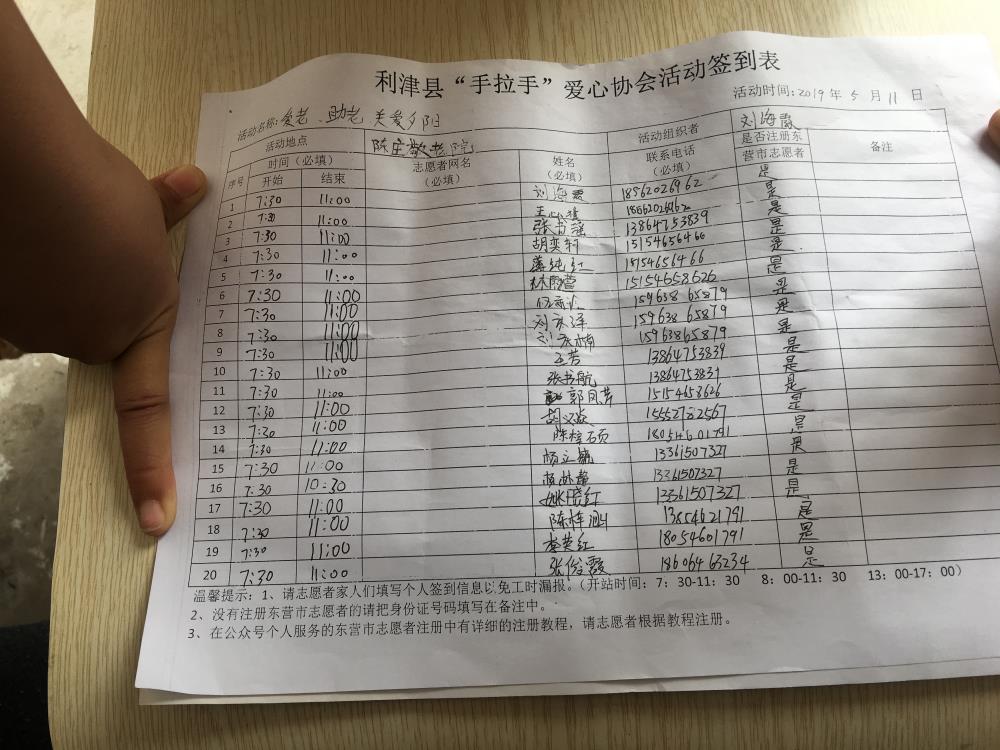 利津县“手拉手”爱心协会活动签到表
活动名称: 爱老、助老,关爱夕阳 活动时间: 2019 年 5 月 11 日
活动地点 陈庄敬老院 活动组织者 刘海霞
序号 时间（必填） 志愿者网名（必填） 姓名（必填） 联系电话（必填） 是否注册东营市志愿者 备注
开始 结束
1 7:30 11:00 刘海霞 18562026962 是
2 7:30 11:00 18562026962 是
3 7:30 11:00 张书瑶 13864753839 是
4 7:30 11:00 胡奕轩 15154656466 是
5 7:30 11:00 15154656466 是
6 7:30 11:00 林雨萱 15154658626 是
7 7:30 11:00 15963865879 是
8 7:30 11:00 15963865879 是
9 7:30 11:00 15963865879 是
10 7:30 11:00 王芳 13864753839 是
11 7:30 11:00 张书航 13864753839 是
12 7:30 11:00 郭凤萍 15154658626 是
13 7:30 11:00 15552782567 是
14 7:30 11:00 陈梓硕 18054601791 是
15 7:30 11:00 13361507327 是
16 7:30 10:30 13361507327 是
17 7:30 11:00 姚晓红 13361507327 是
18 7:30 11:00 13854621791 是
19 7:30 11:00 李英红 18054601791 是
20 7:30 11:00 张俊霞 18606465234 是
温馨提示：1、请志愿者家人们填写个人签到信息以免工时漏报。（开站时间：7：30-11：30 8：00-11：30 13：00-17：00）
2、没有注册东营市志愿者的请把身份证号码填写在备注中。
3、在公众号个人服务的东营市志愿者注册中有详细的注册教程，请志愿者根据教程注册。